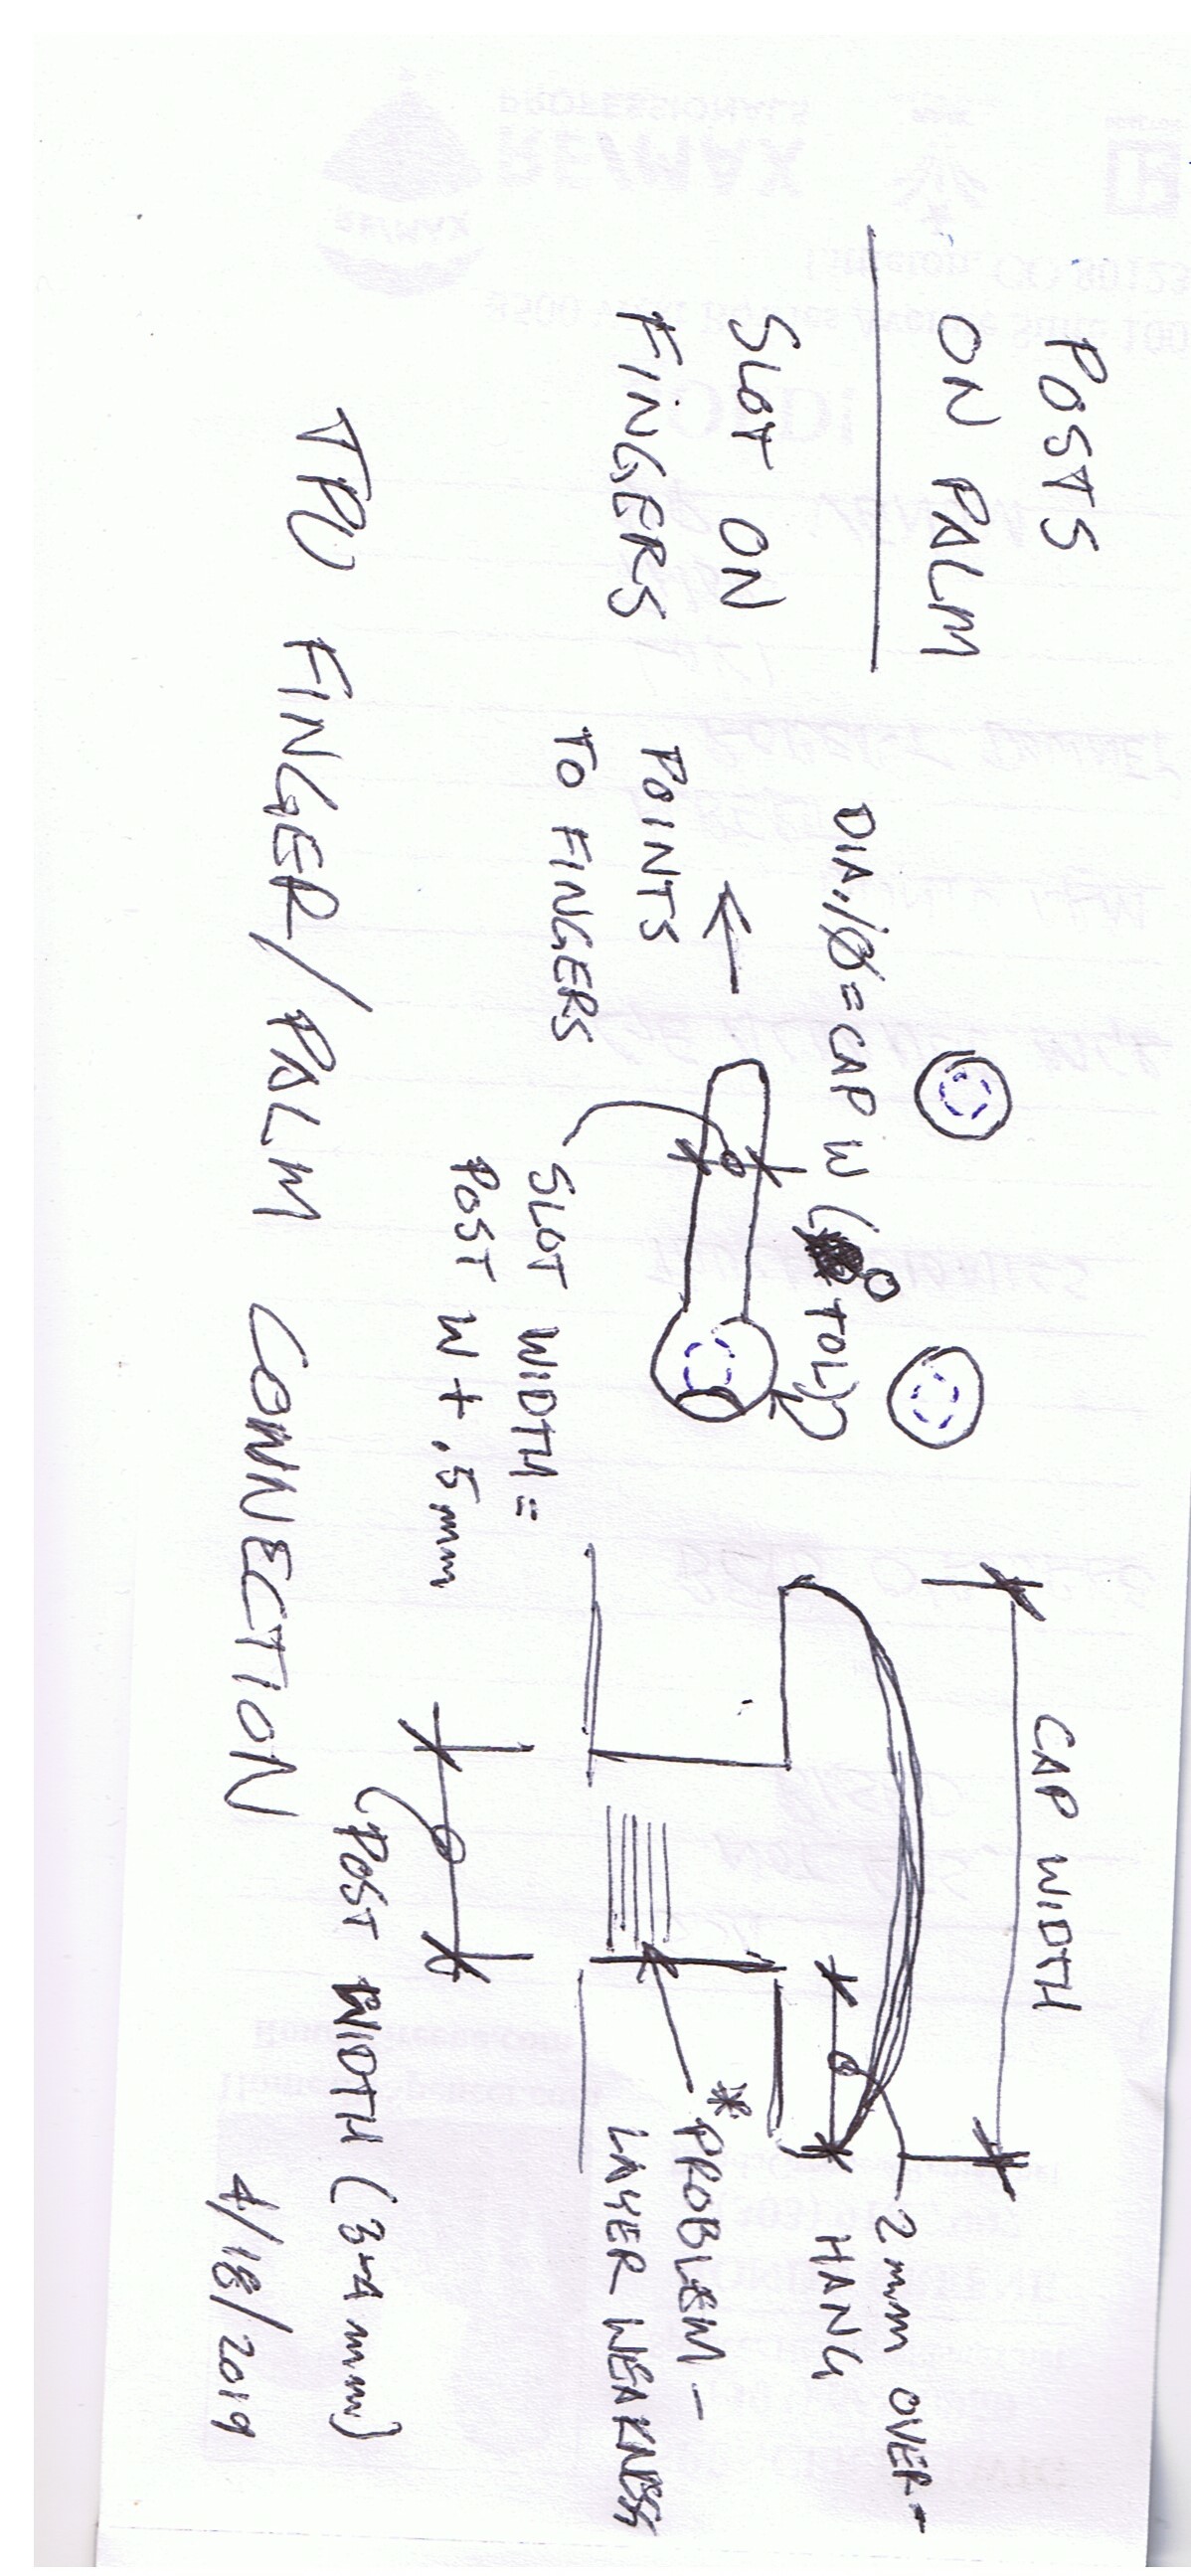 POSTS
ON PALM
SLOT ON
FINGERS
DIA./Ø = CAP W (0 TOL)
POINTS
TO FINGERS
SLOT WIDTH =
POST W + .5mm
CAP WIDTH
2mm OVER-
HANG
*PROBLEM -
LAYER WEAKNESS
POST WIDTH (3-4mm)
TPU FINGER/PALM CONNECTION
4/18/2019